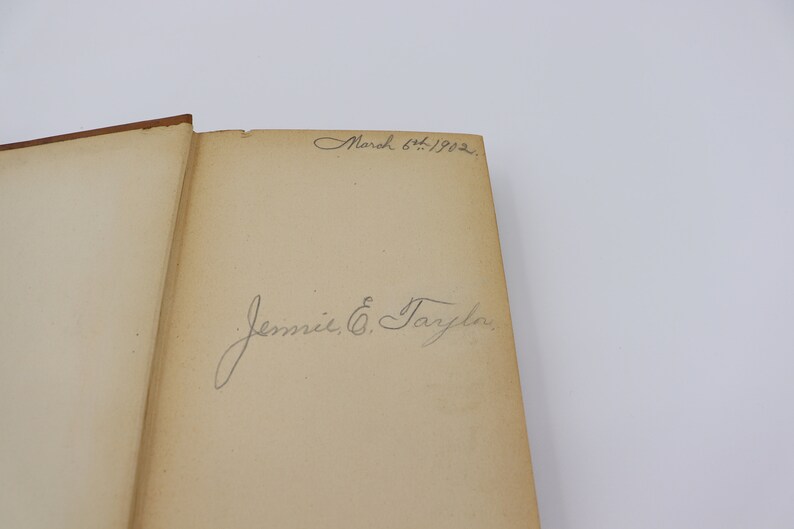 March 6th 1902.
Jennie. E. Taylor.